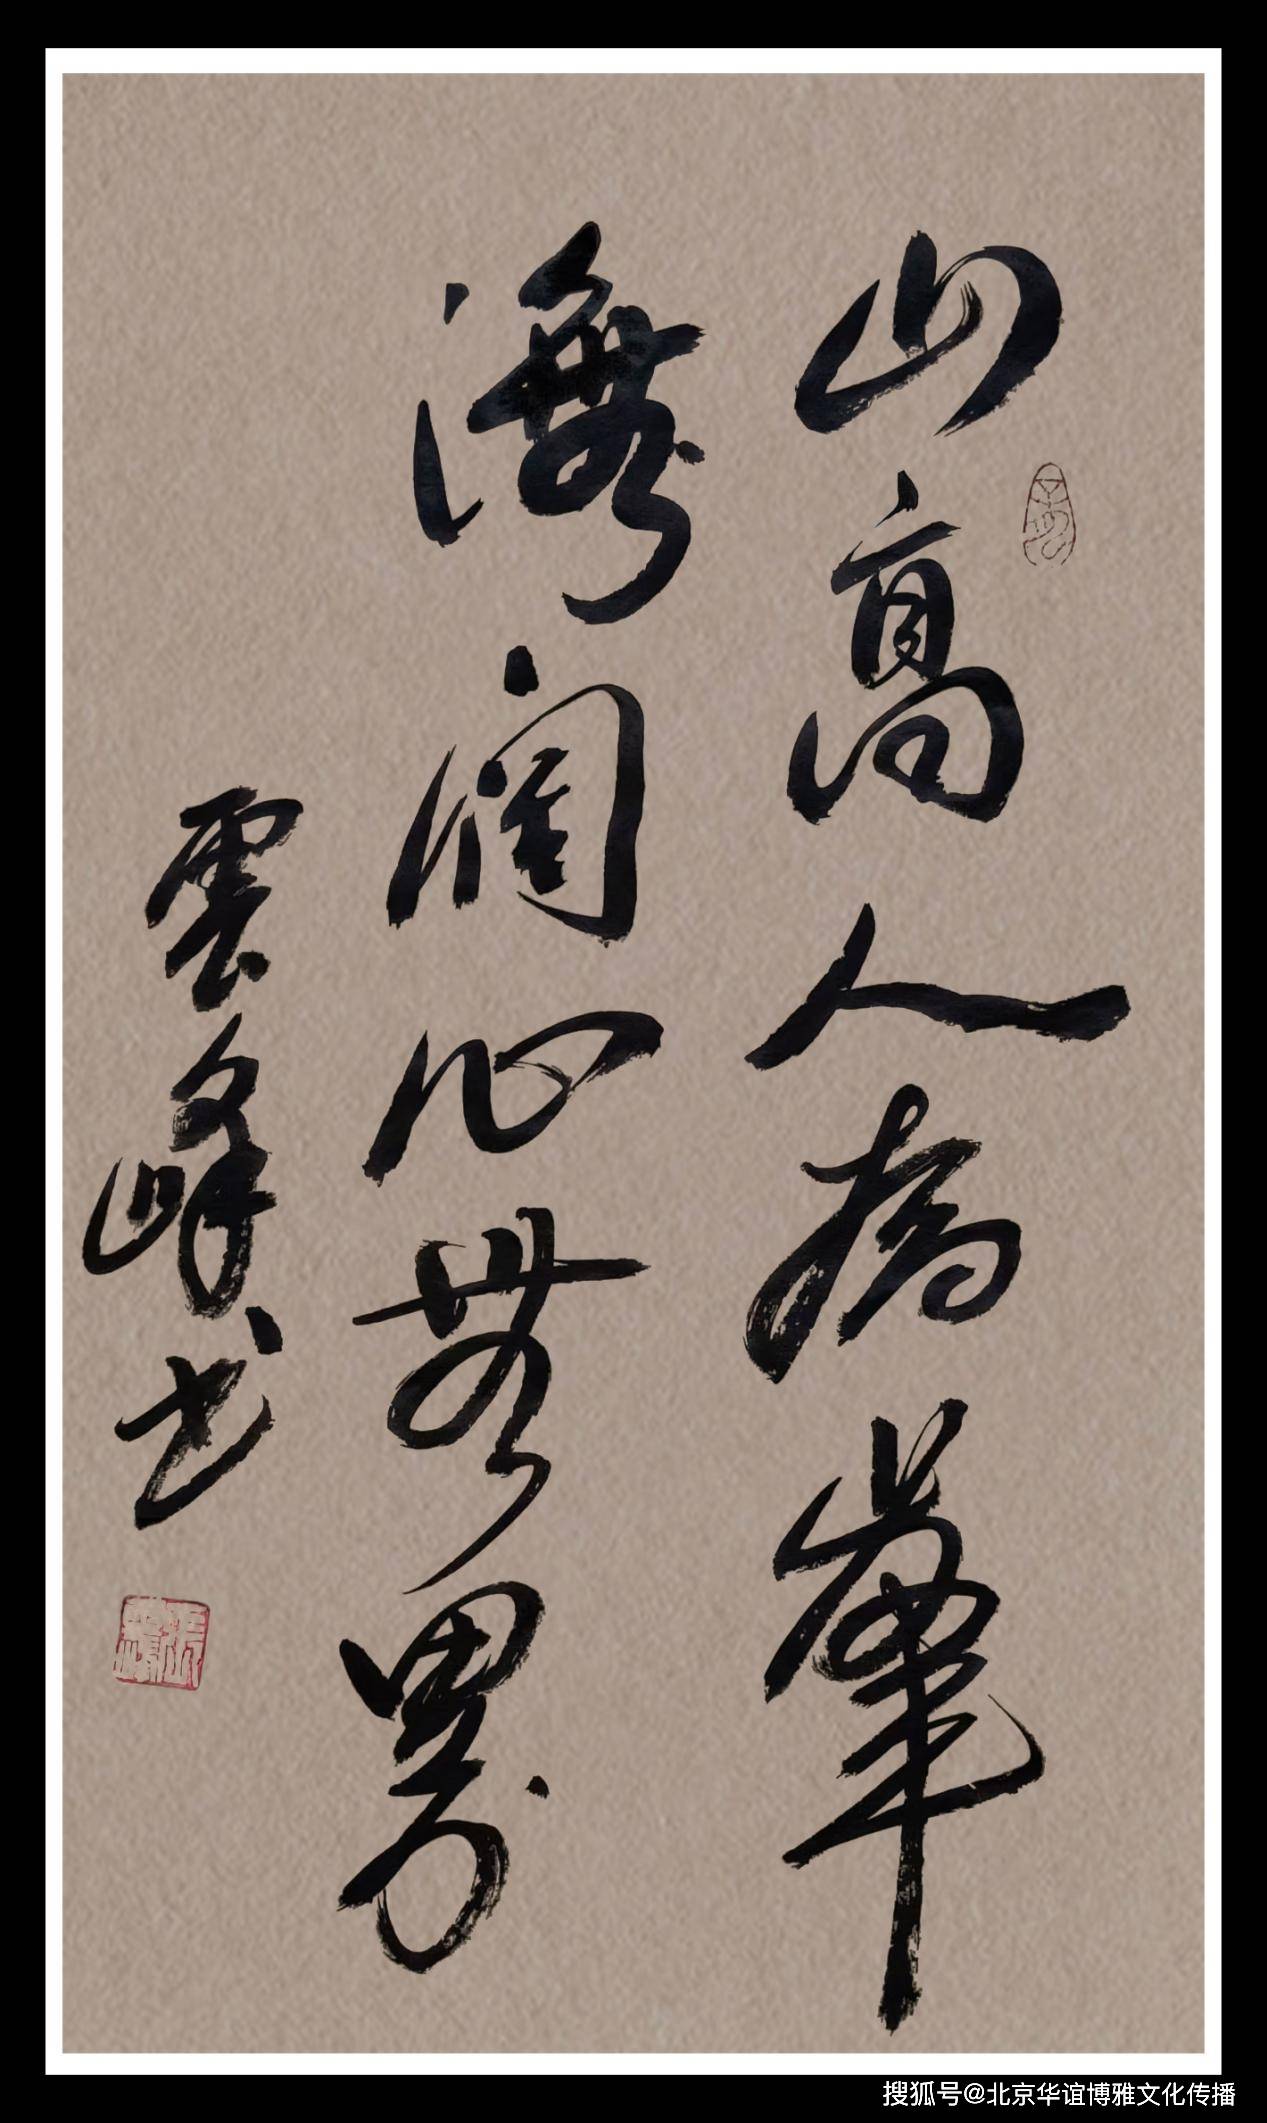 山高人为峰
海阔心无界
雲峰书
搜狐号@北京华谊博雅文化传播